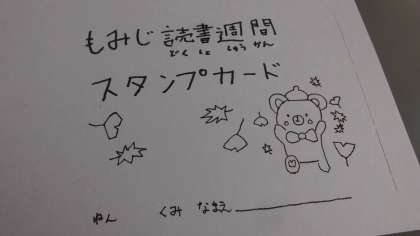 もみじ読書週間
どくしょ しゅうかん
スタンプカード
ねん くみ なまえ